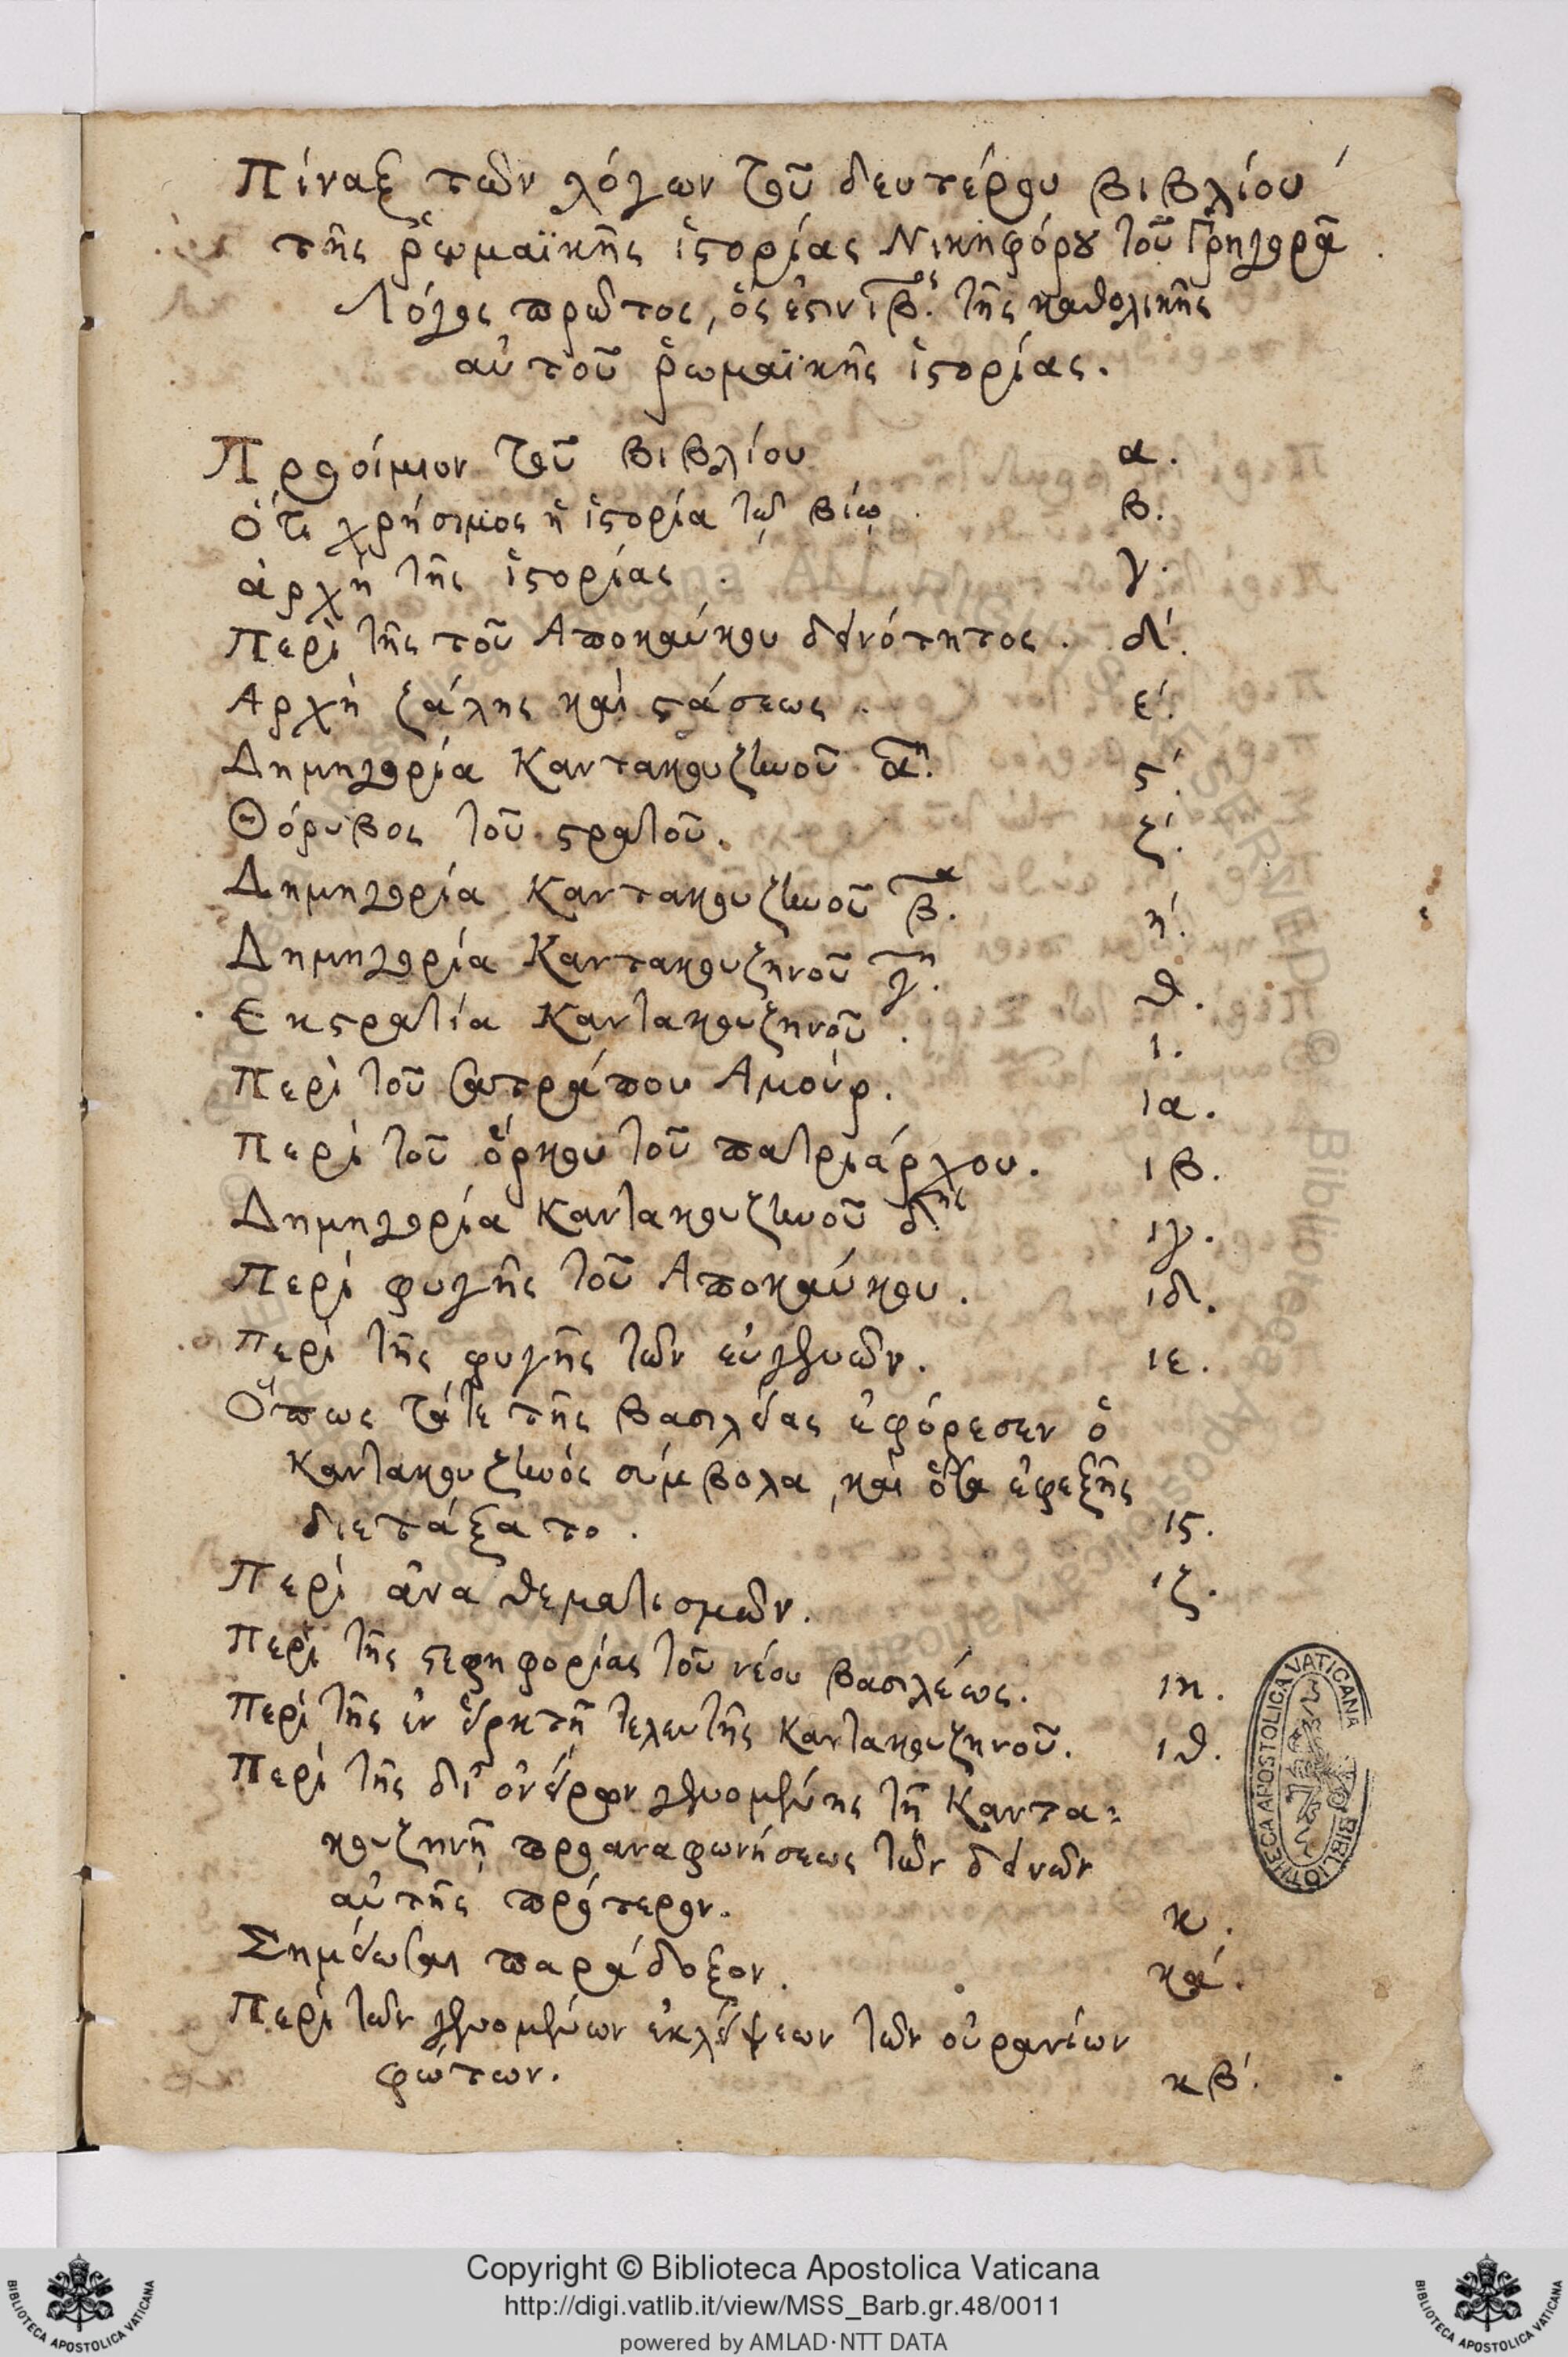 Πίναξ τῶν λόγων τοῦ δευτέρου βιβλίου
τῆς ῥωμαϊκῆς ἱστορίας Νικηφόρου τοῦ Γρηγορᾶ.
Λόγος πρῶτος, ὅς ἐστιν ιβ̅ος. τῆς καθολικῆς
αὐτοῦ ῥωμαϊκῆς ἱστορίας.
Προοίμιον τοῦ βιβλίου α.
Ὅτι χρήσιμος ἡ ἱστορία τῷ βίῳ. β.
ἀρχὴ τῆς ἱστορίας. γ.
Περὶ τῆς τοῦ Αποκαύκου δεινότητος. δ'.
Αρχὴ ζάλης καὶ στάσεως. ε'.
Δημηγορία Καντακουζηνοῦ α̅η. ς'.
Θόρυβος τοῦ στρατοῦ. ζ'.
Δημηγορία Καντακουζηνοῦ β̅α. η'.
Δημηγορία Καντακουζηνοῦ γ̅η. θ.
Εκστρατία Καντακουζηνοῦ. ι.
Περὶ τοῦ σατράπου Αμούρ. ια.
Περὶ τοῦ ὅρκου τοῦ πατριάρχου. ιβ.
Δημηγορία Καντακουζηνοῦ δ.ης ιγ.
Περὶ φυγῆς τοῦ Αποκαύκου. ιδ.
Περὶ τῆς φυγῆς τῶν εὐγενῶν. ιε.
Ὅπως τά τε τῆς βασιλείας ἐφόρεσεν ὁ
Καντακουζηνός σύμβολα, καὶ ὅσα ἐφεξῆς
διετάξατο. ις.
Περὶ ἀναθεματισμῶν. ιζ.
Περὶ τῆς στεφηφορίας τοῦ νέου βασιλέως. ιη.
Περὶ τῆς ἐν εἱρκτῇ τελευτῆς Καντακουζηνοῦ. ιθ.
Περὶ τῆς δι' ὀνείρων γενομένης τῇ Καντα=
κουζηνῇ προαναφωνήσεως τῶν δεινῶν
αὐτῆς πρότερον. κ.
Σημείωσαι παράδοξον. κα'.
Περὶ τῶν γενομένων ἐκλείψεων τῶν οὐρανίων
φώτων. κβ'.
BIBLIOTHECA APOSTOLICA VATICANA
Copyright © Biblioteca Apostolica Vaticana
http://digi.vatlib.it/view/MSS_Barb.gr.48/0011
powered by AMLAD·NTT DATA
BIBLIOTECA APOSTOLICA VATICANA
BIBLIOTECA APOSTOLICA VATICANA